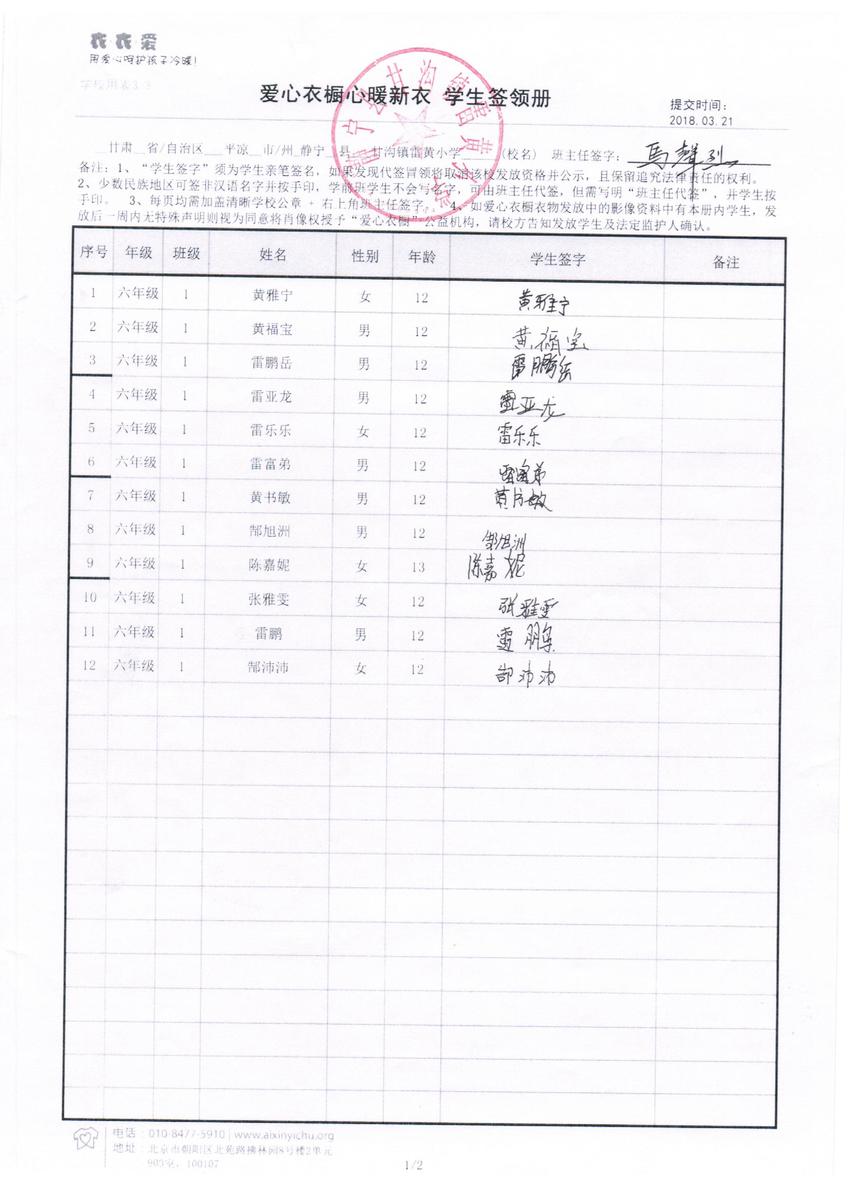 衣衣爱
用爱心呵护孩子冷暖!
学校用表3-3
爱心衣橱心暖新衣 学生签领册
提交时间:
2018.03.21
甘肃__省/自治区___平凉__市/州_静宁_县___甘沟镇雷黄小学____(校名) 班主任签字:
备注:1、“学生签字”须为学生亲笔签名,如果发现代签冒领将取消该校发放资格并公示,且保留追究法律责任的权利。
2、少数民族地区可签非汉语名字并按手印,学前班学生不会写名字,可由班主任代签,但需写明“班主任代签”,并学生按
手印。 3、每页均需加盖清晰学校公章 + 右上角班主任签字。 4、如爱心衣橱衣物发放中的影像资料中有本册内学生,发
放后一周内无特殊声明则视为同意将肖像权授予“爱心衣橱”公益机构,请校方告知发放学生及法定监护人确认。
静宁县甘沟镇雷黄小学
序号 年级 班级 姓名 性别 年龄 学生签字 备注
1 六年级 1 黄雅宁 女 12 黄雅宁
2 六年级 1 黄福宝 男 12 黄福宝
3 六年级 1 雷鹏岳 男 12 雷鹏岳
4 六年级 1 雷亚龙 男 12 雷亚龙
5 六年级 1 雷乐乐 女 12 雷乐乐
6 六年级 1 雷富弟 男 12 雷富弟
7 六年级 1 黄书敏 男 12 黄书敏
8 六年级 1 郜旭洲 男 12 郜旭洲
9 六年级 1 陈嘉妮 女 13 陈嘉妮
10 六年级 1 张雅雯 女 12 张雅雯
11 六年级 1 雷鹏 男 12 雷鹏
12 六年级 1 郜沛沛 女 12 郜沛沛
电话:010-8477-5910 | www.aixinyichu.org
地址:北京市朝阳区北苑路柳林园8号楼2单元
903室,100107
1/2